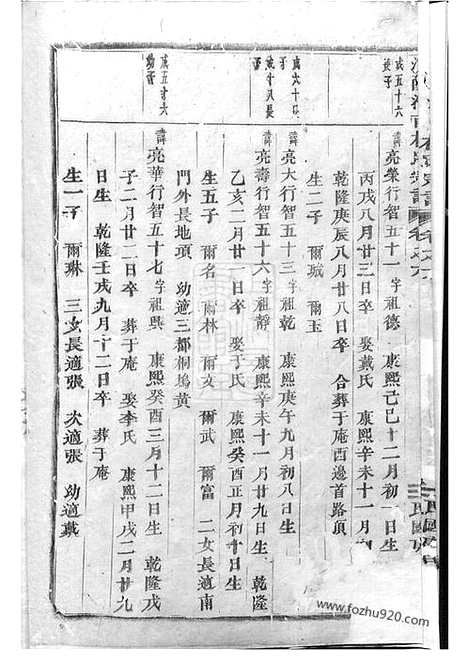 諱亮榮行智五十一 字祖德 康熙己巳十二月初一日生
丙戌八月廿三日卒 娶戴氏 康熙辛未十一月初
乾隆庚辰八月廿八日卒 合葬于庵西邊首路頂
生二子 爾珹 爾玉
諱亮大行智五十三 字祖乾 康熙庚午九月初八日生
諱亮壽行智五十六 字祖靜 康熙辛未十一月廿九日生 乾隆
乙亥二月廿一日卒 娶于氏 康熙癸酉正月初十日生
生五子 爾名 爾林 爾文 爾武 爾富 二女長適南
門外長地項 幼適三都桐塢黃
諱亮華行智五十七 字祖興 康熙癸酉三月十二日生 乾隆戊
子二月廿二日卒 葬于庵 娶李氏 康熙甲戌二月廿九
日生 乾隆壬戌九月十二日卒 葬于庵
生一子 爾琳 三女長適張 次適張 幼適戴
www.fozhu920.com